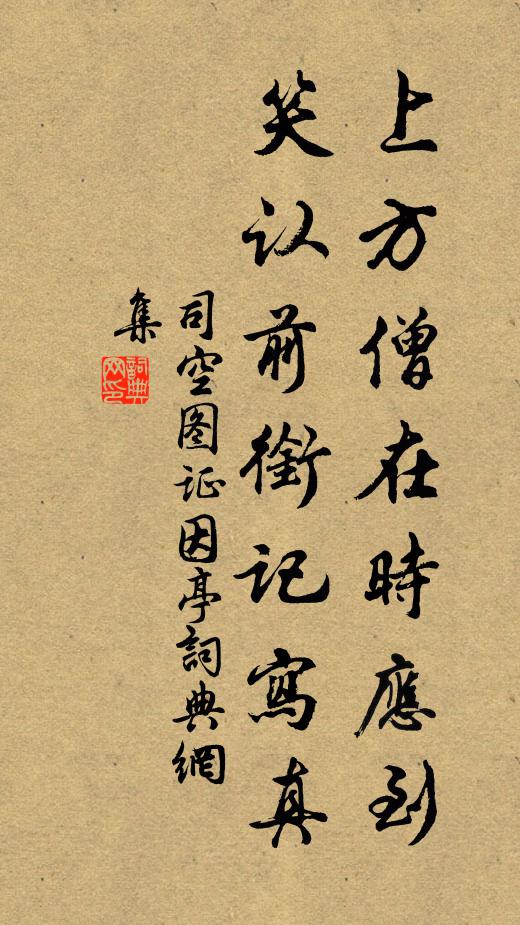 上方僧在時應到
笑认前銜記寫真
司空图证因亭詞典網
集
詞典网印